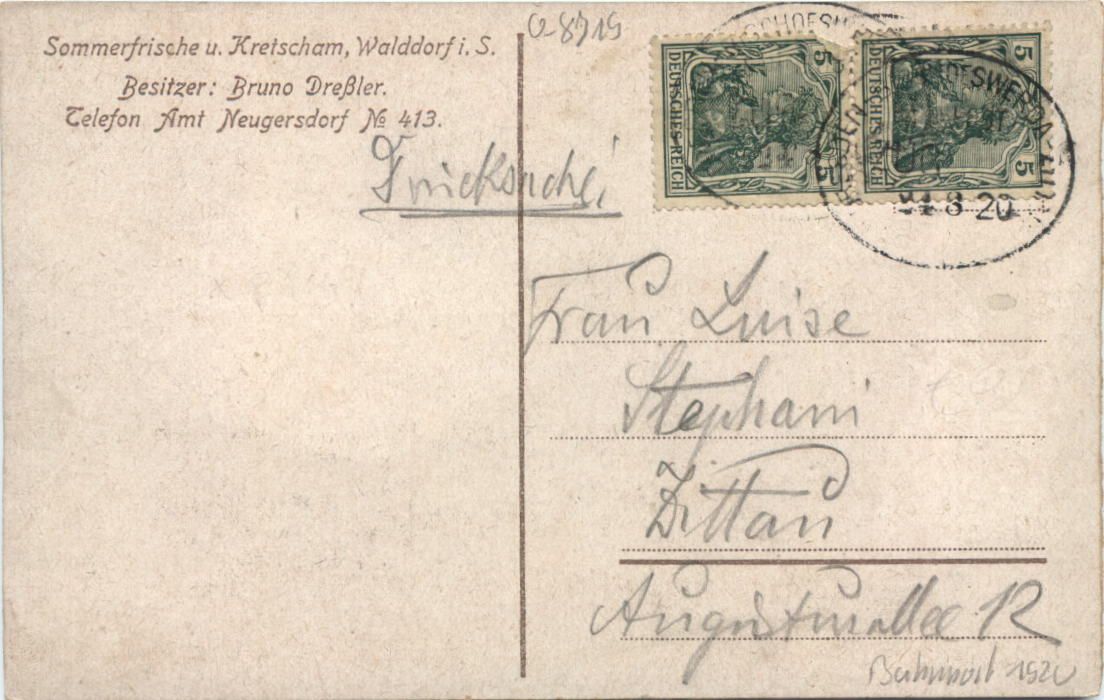 Sommerfrische u. Kretscham, Walddorf i. S.
Besitzer: Bruno Dreßler.
Telefon Amt Neugersdorf № 413.
Drucksache
5 DEUTSCHES REICH 5
5 DEUTSCHES REICH 5
8 20
Frau Luise
Stephani
Zittau
Augustusallee 12
Bahnpost 1920